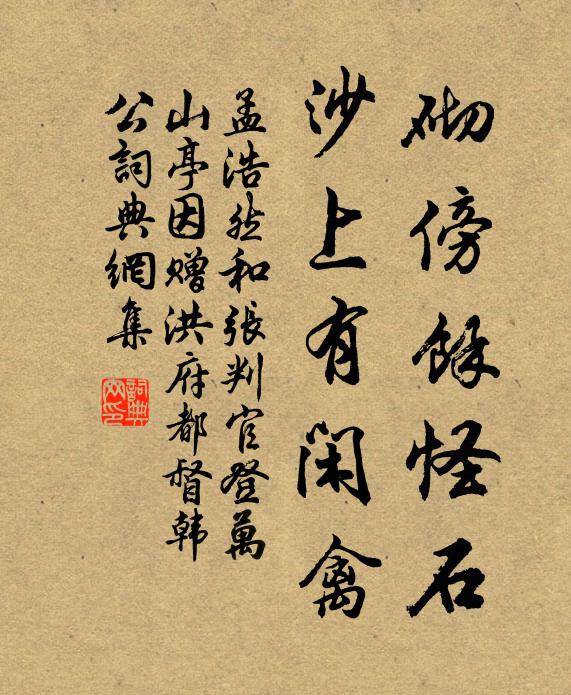 砌傍餘怪石
沙上有閑禽
孟浩然和張判官登萬
山亭因贈洪府都督韓
公詞典網集
詞典網印